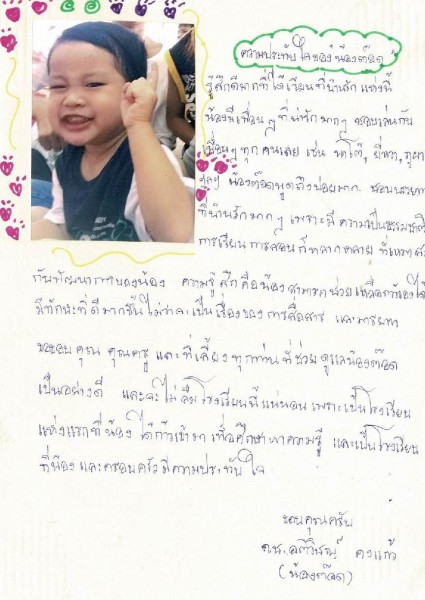 ความประทับใจของน้องต๊อด
รู้สึกดีมากที่ได้เรียนที่น่ารัก แห่งนี้
น้องมีเพื่อนๆ ที่น่ารักมากๆ ชอบเล่นกับ
เพื่อนๆ ทุกคนเลย เช่น นาโต้, ยี่หวา, ภูผา
ฯลฯ น้องต๊อดพูดถึงบ่อยมาก ชอบบรรยากาศ
ที่น่ารักมากๆ เพราะมีความเป็นธรรมชาติ
การเรียนการสอนก็หลากหลาย ที่เหมาะสม
กับพัฒนาการของน้อง ความรู้สึกคือน้องสามารถช่วยเหลือตัวเองได้
มีทักษะที่ดีมากขึ้นไม่ว่าจะเป็นเรื่องของการสื่อสาร และมารยาท
ขอขอบคุณ คุณครู และพี่เลี้ยงทุกท่านที่ช่วยดูแลน้องต๊อด
เป็นอย่างดี และจะไม่ลืมโรงเรียนนี้แน่นอน เพราะเป็นโรงเรียน
แห่งแรกที่น้องได้ก้าวเข้ามาเพื่อศึกษาหาความรู้ และเป็นโรงเรียน
ที่น้องและครอบครัวมีความประทับใจ
ขอบคุณครับ
ด.ช. คงแก้ว
(น้องต๊อด)